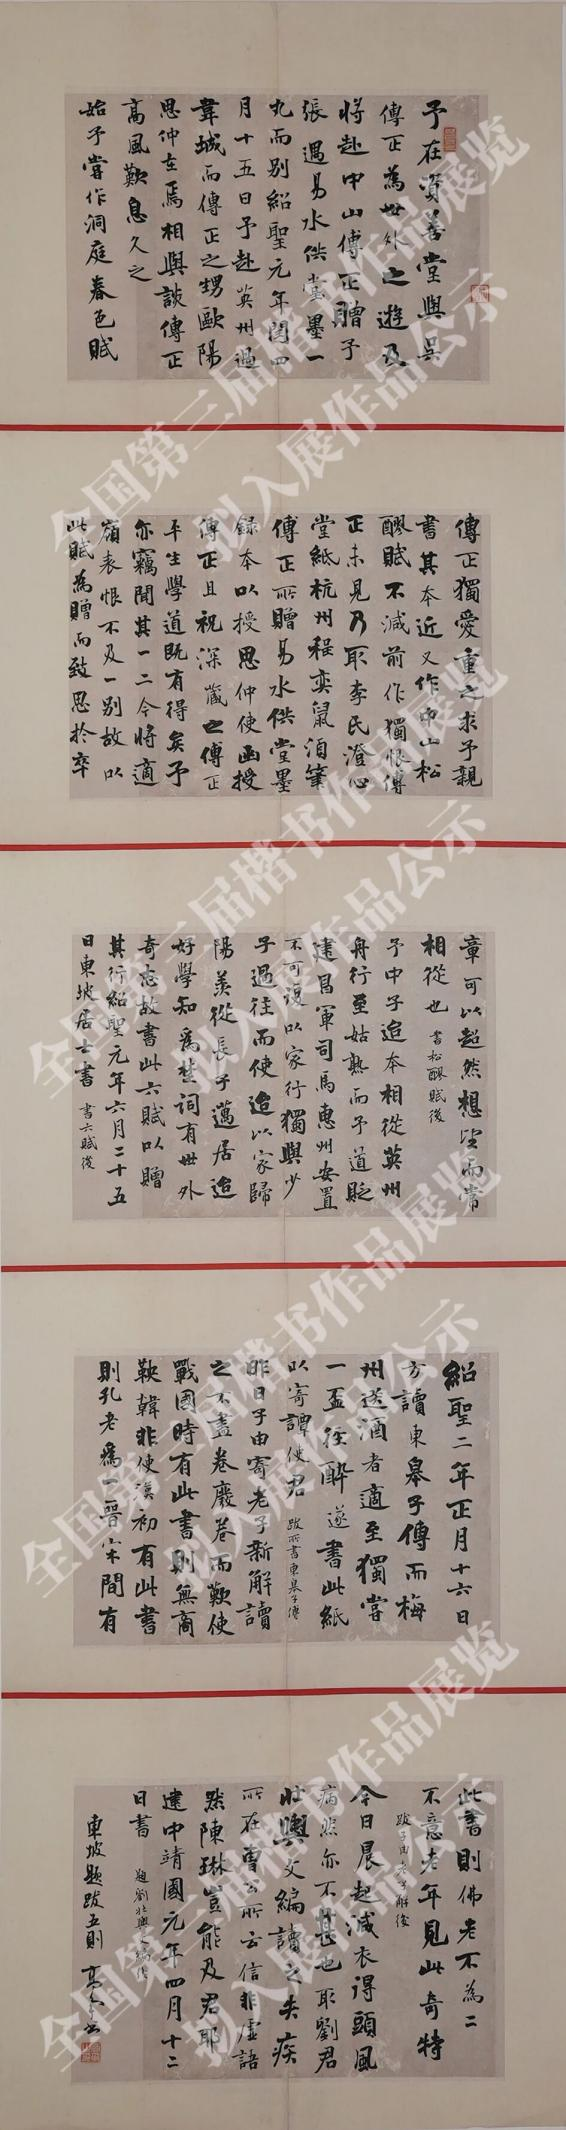 予在資善堂與吳
傳正為世外之遊及
將赴中山傳正贈予
張遇易水供堂墨一
丸而別紹聖元年閏四
月十五日予赴英州過
韋城而傳正之甥歐陽
思仲在焉相與談傳正
高風歎息久之
始予嘗作洞庭春色賦
傳正獨愛重之求予親
書其本近又作中山松
醪賦不減前作獨恨傳
正未見乃取李氏澄心
堂紙杭州程奕鼠須筆
傳正所贈易水供堂墨
錄本以授思仲使面授
傳正且祝深藏之傳正
平生學道既有得矣予
亦竊聞其一二今將適
嶺表恨不及一別故以
此賦為贈而致思於卒
章可以超然想望而常
相從也 書松醪賦後
予中子迨本相從英州
舟行至姑熟而予道貶
建昌軍司馬惠州安置
不可復以家行獨與少
子過往而使迨以家歸
陽羨從長子邁居迨
好學知為楚詞有世外
奇志故書此六賦以贈
其行紹聖元年六月二十五
日東坡居士書 書六賦後
紹聖二年正月十六日
方讀東皋子傳而梅
州送酒者適至獨嘗
一盃徑醉遂書此紙
以寄譚使君 跋所書東皋子傳
昨日子由寄老子新解讀
之不盡卷廢卷而歎使
戰國時有此書則無商
鞅韓非使漢初有此書
則孔老為一晉宋間有
此書則佛老不為二
不意老年見此奇特
跋子由老子解後
今日晨起減衣得頭風
病然亦不甚也取劉君
壯輿文編讀之失疾
所在曹公所云信非虛語
然陳琳豈能及君耶
建中靖國元年四月十二
日書 題劉壯輿文編後
東坡題跋五則
全国第三届楷书作品展览
拟入展作品公示
全国第三届楷书作品展览
拟入展作品公示
全国第三届楷书作品展览
拟入展作品公示
全国第三届楷书作品展览
拟入展作品公示